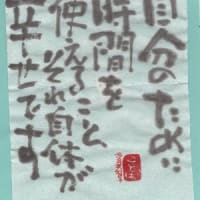 自分のために
時間を
使えること、
それ自体が
幸せです